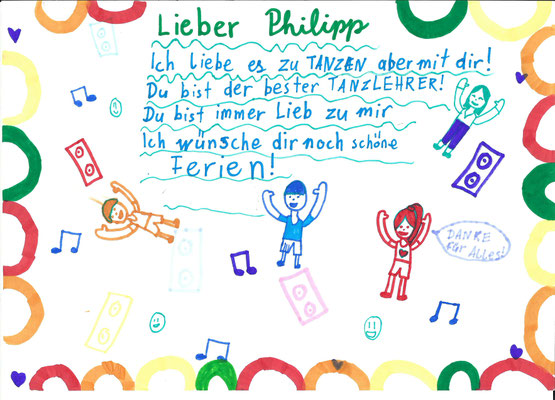 Lieber Philipp
Ich liebe es zu TANZEN aber mit dir!
Du bist der bester TANZLEHRER!
Du bist immer Lieb zu mir
Ich wünsche dir noch schöne
Ferien!
DANKE
FÜR ALLES!